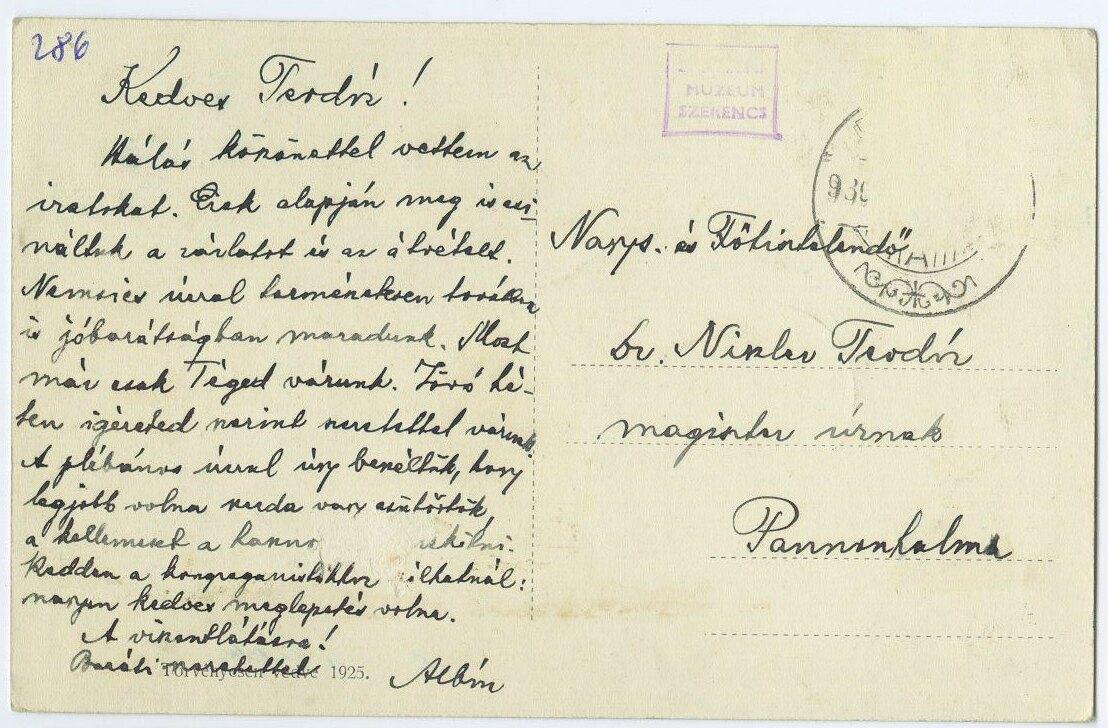 286
Kedves Teodóz!
Hálás köszönettel vettem az
iratokat. Ezek alapján meg is csi-
náltuk a zárlatot és az átvételt.
úrral természetesen továbbra
is jóbarátságban maradunk. Most
már csak Téged várunk. Jövő hé-
ten igéreted szerint szeretettel várunk.
A plébános úrral úgy beszéltük, hogy
legjobb volna szerda vagy csütörtök,
a kellemeset a haszno
Kedden a kongreganistákhoz
nagyon kedves meglepetés volna.
A viszontlátásra!
Baráti szeretettel
Albin
Törvényesen védve 1925.
MUZEUM
SZERENCS
Nagys. és Főtisztelendő
Dr. Niszler Teodóz
magister úrnak
Pannonhalma